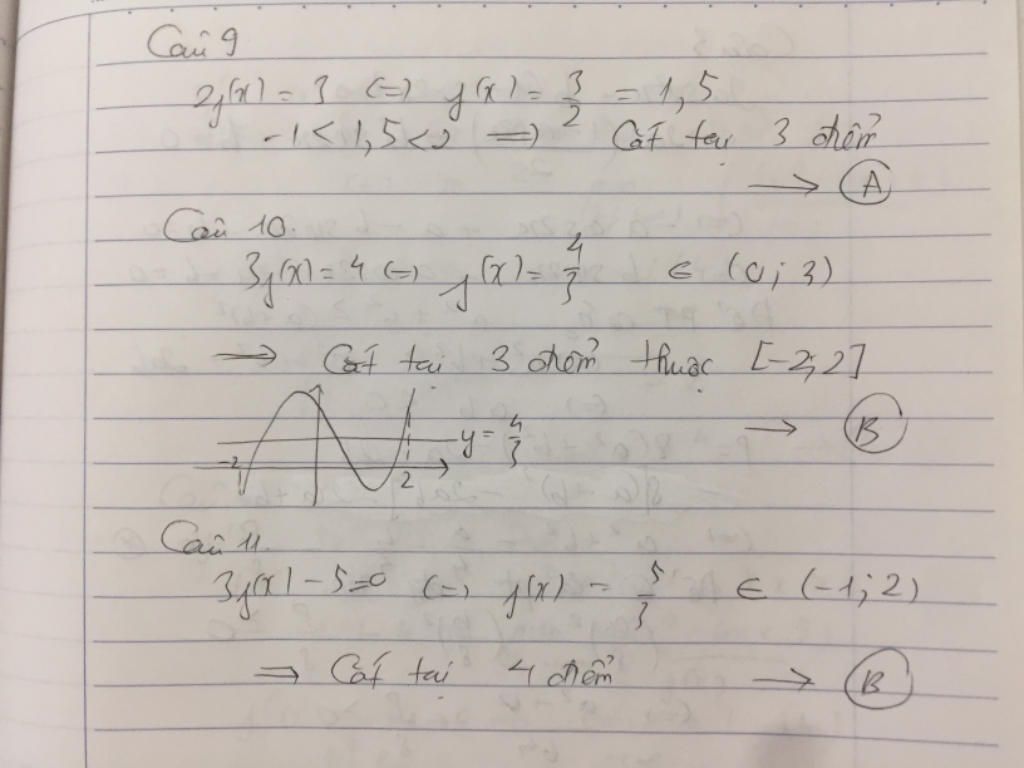 Câu 9
2f(x) = 3 (=) f(x) = 3/2 = 1,5
-1 < 1,5 < 2 => Cắt tại 3 điểm
→ A
Câu 10.
3f(x) = 4 (=) f(x) = 4/3 ∈ (0; 3)
=> Cắt tại 3 điểm thuộc [-2; 2]
→ B
y = 4/3
-2 2
Câu 11.
3f(x) - 5 = 0 (=) f(x) = 5/3 ∈ (-1; 2)
=> Cắt tại 4 điểm → B